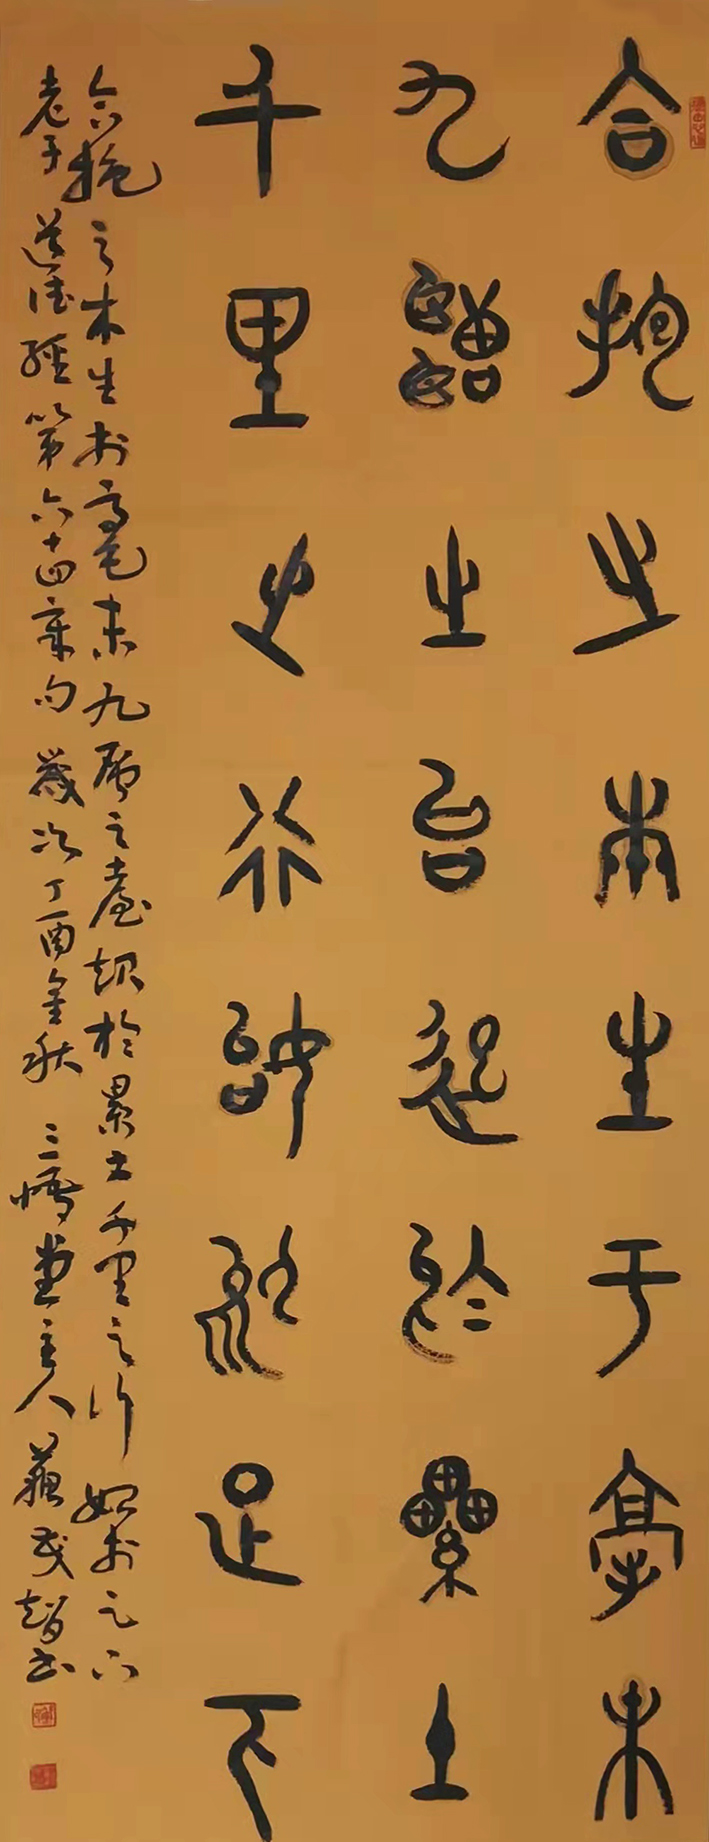 合抱之木生于毫末
九層之台起於纍土
千里之行始於足下
合抱之木生於毫末九層之臺起於累土千里之行始於足下
老子道德經第六十四章句 歲次丁酉金秋 三 堂主人 蘇 書